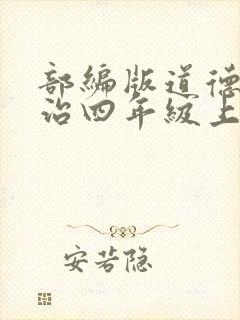 部编版道德
治四年级上
安若隐